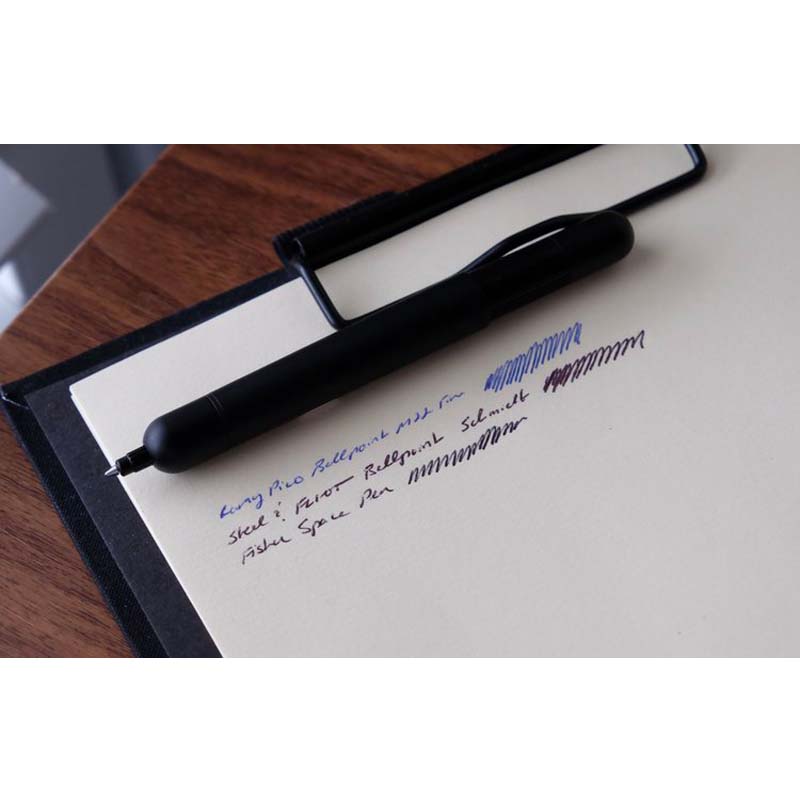 Lamy Pico Ballpoint M22 Fine
Steel & Flint Ballpoint Schmidt
Fisher Space Pen